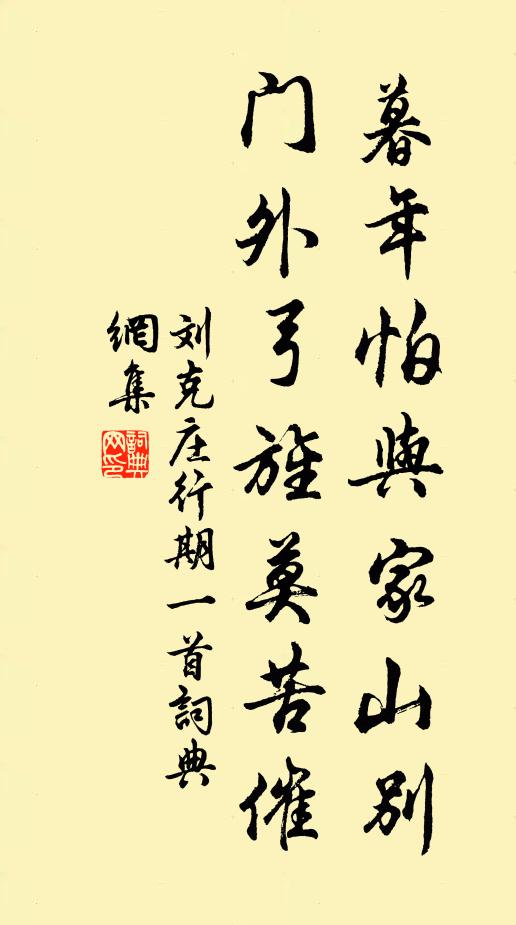 暮年怕與家山別
门外弓旌莫苦催
刘克庄行期一首詞典
網集
詞典网印